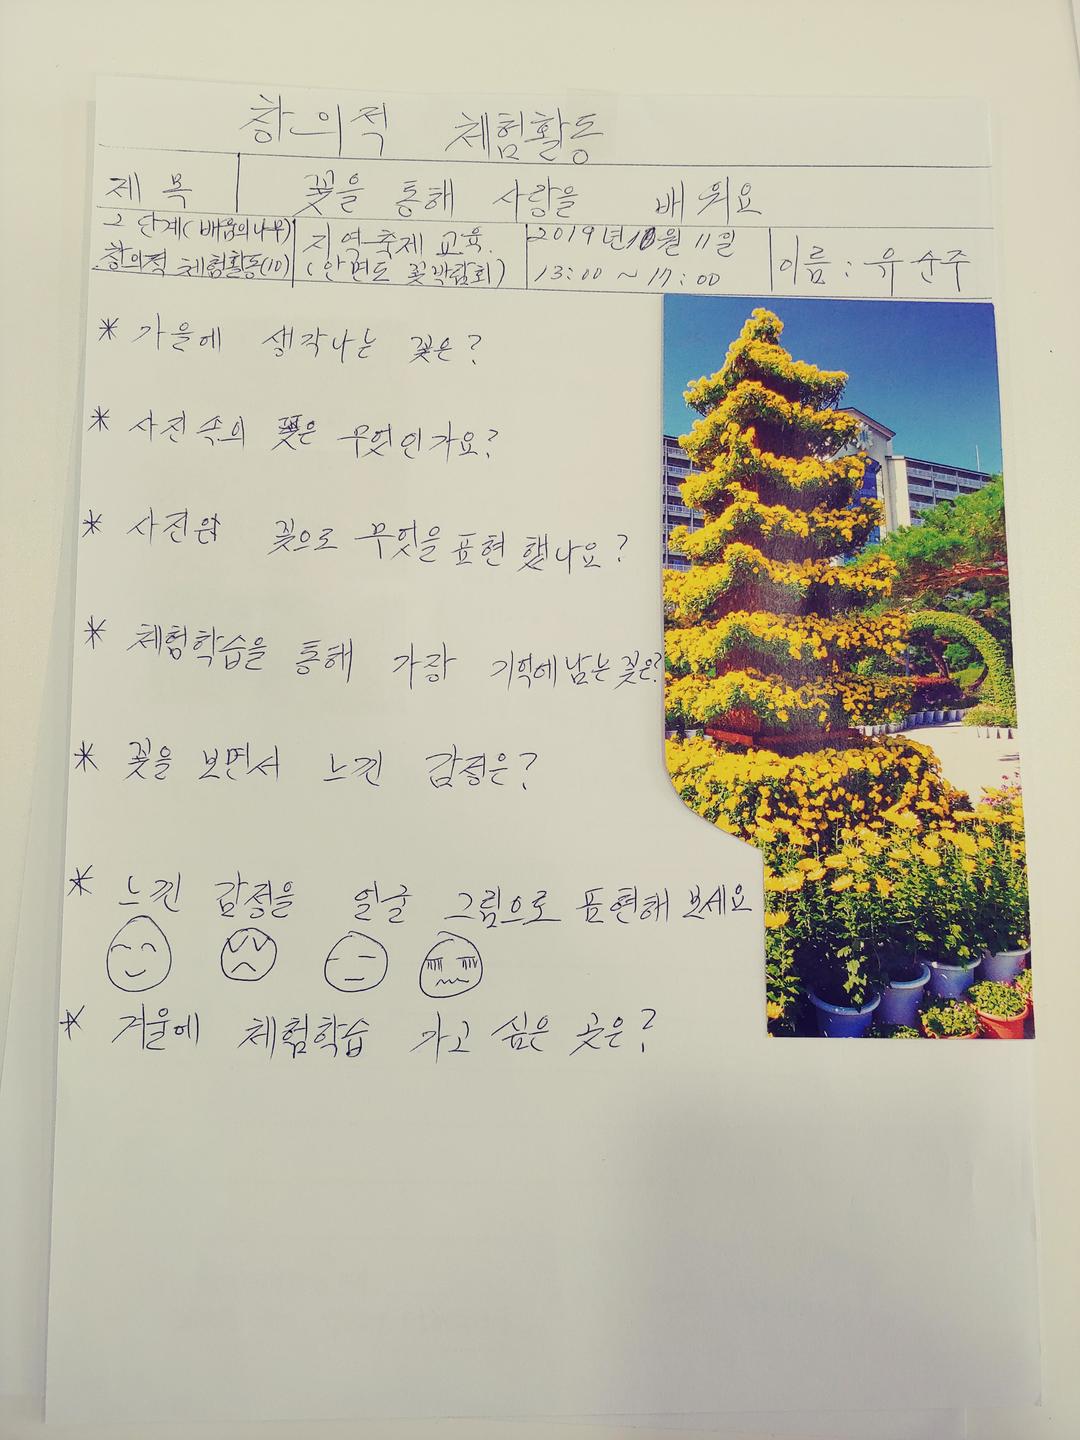 창의적 체험활동
제 목 꽃을 통해 사랑을 배워요
2 단계(배움의나무) 지역축제 교육. 2019년 10월 11일 이름 : 유순주
창의적 체험활동(10) (안면도 꽃박람회) 13:00 ~ 17:00
* 가을에 생각나는 꽃은?
* 사진속의 꽃은 무엇인가요?
* 사진의 꽃으로 무엇을 표현 했나요?
* 체험학습을 통해 가장 기억에남는꽃은?
* 꽃을 보면서 느낀 감정은?
* 느낀 감정을 얼굴 그림으로 표현해 보세요
* 겨울에 체험학습 가고 싶은 곳은?